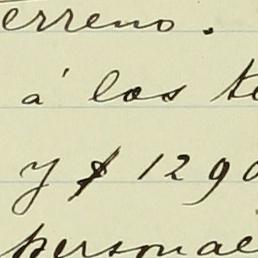 erreno.
á los te
y $ 1290
personae